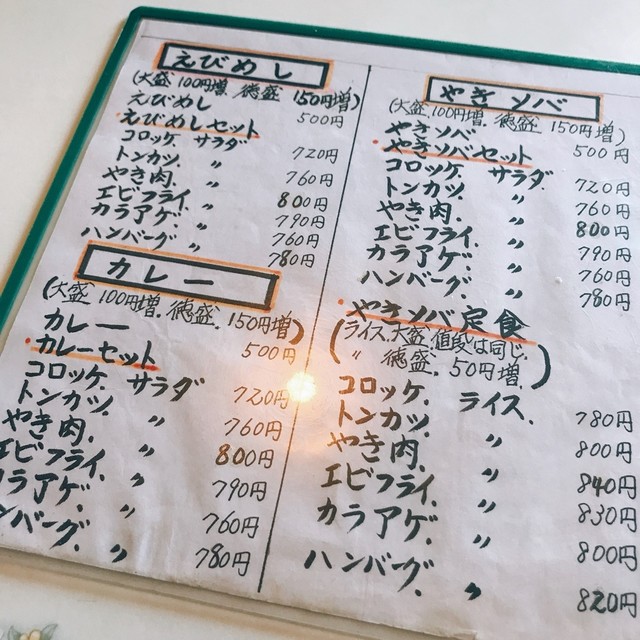 えびめし
(大盛.100円増.徳盛.150円増)
えびめし 500円
えびめしセット
コロッケ. サラダ 720円
トンカツ. 〃 760円
やき肉. 〃 800円
エビフライ. 〃 790円
カラアゲ. 〃 760円
ハンバーグ. 〃 780円
カレー
(大盛.100円増.徳盛.150円増)
カレー 500円
カレーセット
コロッケ. サラダ 720円
トンカツ. 〃 760円
やき肉. 〃 800円
エビフライ. 〃 790円
カラアゲ. 〃 760円
ハンバーグ. 〃 780円
やきソバ
(大盛.100円増.徳盛.150円増)
やきソバ 500円
やきソバセット
コロッケ. サラダ 720円
トンカツ. 〃 760円
やき肉. 〃 800円
エビフライ. 〃 790円
カラアゲ. 〃 760円
ハンバーグ. 〃 780円
やきソバ定食
(ライス.大盛.値段は同じ.
〃 徳盛.50円増.)
コロッケ. ライス. 780円
トンカツ. 〃 800円
やき肉. 〃 840円
エビフライ. 〃 830円
カラアゲ. 〃 800円
ハンバーグ. 〃 820円